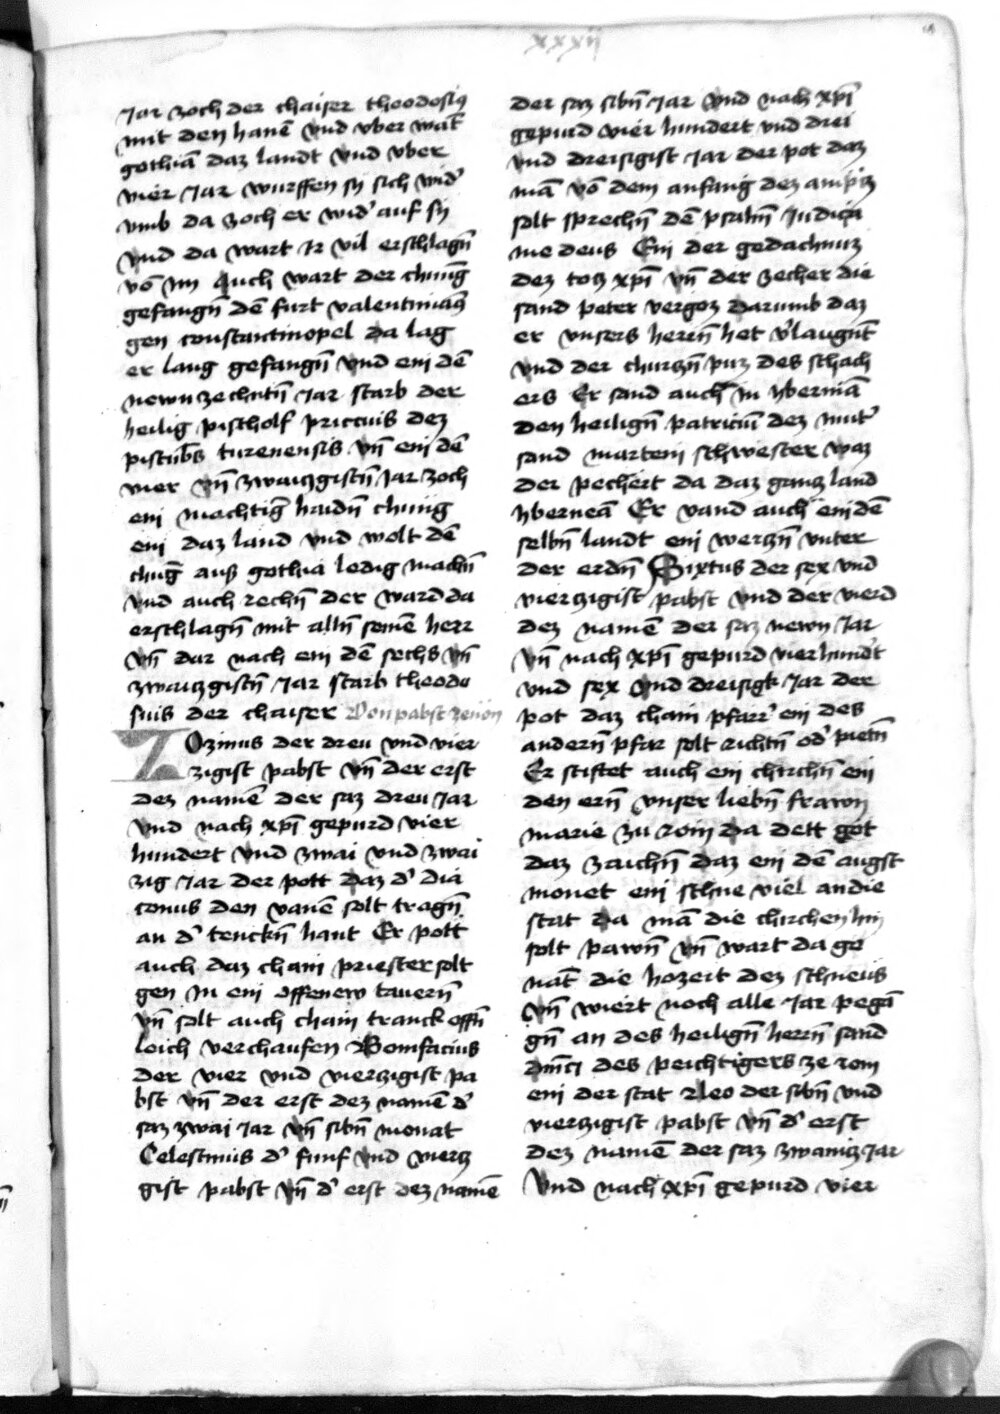 xxxii
Jar zoch der chaiser theodosiꝰ
mit den hanē vnd vber wāt
gothiā daz landt vnd vber
vier Jar wurffen sy sich widʼ
vmb da zoch er widʼ auf sy
vnd da wart Ir vil erschlagn̄
vō im Auch wart der chunḡ
gefangn̄ dē furt valentinianꝰ
gen constantinopel da lag
er lang gefangn̄ vnd ein dē
newnzechntn̄ Jar starb der
heilig pischolf priccius dez
pistūbs turenensis vn̄ ein dē
vier vn̄ zwaiczgistn̄ Jar zoch
ein machtiḡ haidn̄ chunig
ein daz land vnd wolt dē
chūg auß gothia ledig machn̄
vnd auch rechn̄ der ward da
erschlagn̄ mit alln̄ seinē herr
vn̄ dar nach ein dē sechs vn̄
zwaiczgistn̄ Jar starb theodo
sius der chaiser Von pabst zenon
Ozimus der dreu vnd vier
zigist pabst vn̄ der erst
dez namē der saz dreu Jar
vnd nach xp̄i gepurd vier
hundert vnd zwai vnd zwai
zig Jar der pott daz dʼ dia
conus den vanē solt tragn̄
an dʼ tenckn̄ hant Er pott
auch daz chain priester solt
gen in ein offenew tauern̄
vn̄ solt auch chain tranck offn̄
leich verchaufen Bonifacius
der vier vnd vierzigist pa
bst vn̄ der erst dez namē dʼ
saz zwai Jar vn̄ sibn̄ monat
Celestinus dʼ funf vnd vierz
gist pabst vn̄ dʼ erst dez namē
der saz sibn̄ Jar vnd nach xp̄i
gepurd vier hundert vnd drei
vnd dreisigist Jar der pot daz
mā vō dem anfang dez ampz
solt sprechn̄ dē psalm̄ Iudica
me deus Ein der gedachnuz
dez totz xp̄i vn̄ der zecher die
sand peter vergoz darumb daz
er vnsers herrn̄ het vʼlaugnt
vnd der churczn̄ puz des schach
ers Er sand auch in yberniā
den heilign̄ patriciū dez mutʼ
sand martein schwester waz
der pechert da daz gancz land
yberneā Er vand auch ein dē
selbn̄ landt ein werczn̄ vnter
der erdn̄ Sixtus der sex vnd
vierzigist pabst vnd der vierd
dez namē der saz newn Jar
vn̄ nach xp̄i gepurd vier hundʼt
vnd sex vnd dreisigk Jar der
pot daz chain pfarrʼ ein des
andern̄ pfar solt richtn̄ odʼ pietn̄
Er stiftet auch ein chirchn̄ ein
den ern̄ vnser liebn̄ frawn
marie zu rom da dett got
daz zaichn̄ daz ein dē augst
monet ein schne viel an die
stat da mā die chirchen hin
solt pawn̄ vn̄ wart da ge
nāt die hozeit dez schneus
vn̄ wiert noch alle Jar pegā
gn̄ an des heilign̄ herrn̄ sand
dm̄ci des peichtigers ze rom
ein der stat Leo der sibn̄ vnd
vierzigist pabst vn̄ dʼ erst
dez namē der saz zwainczJar
Vnd nach xp̄i gepurd vier